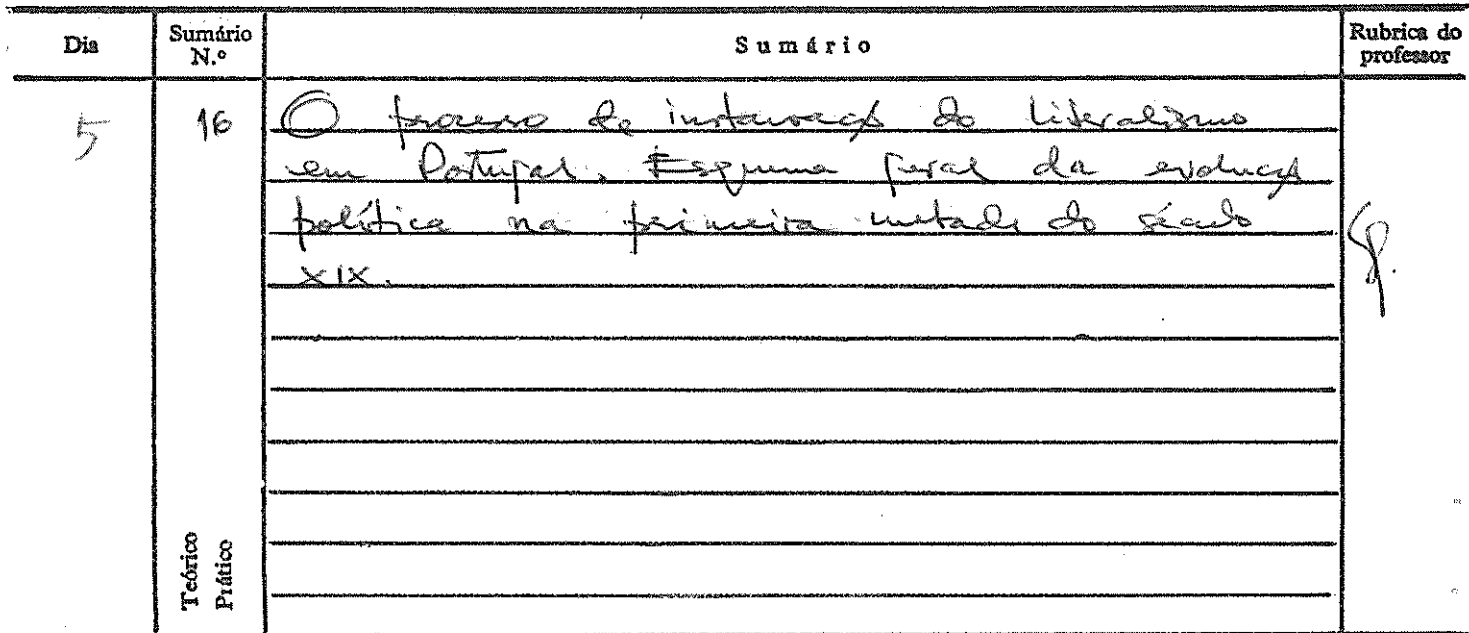 Dia Sumário N.º Sumário Rubrica do professor
5 16 O processo de instauração do liberalismo
em Portugal. Esquema geral da evolução
política na primeira metade do século
XIX.
Teórico
Prático